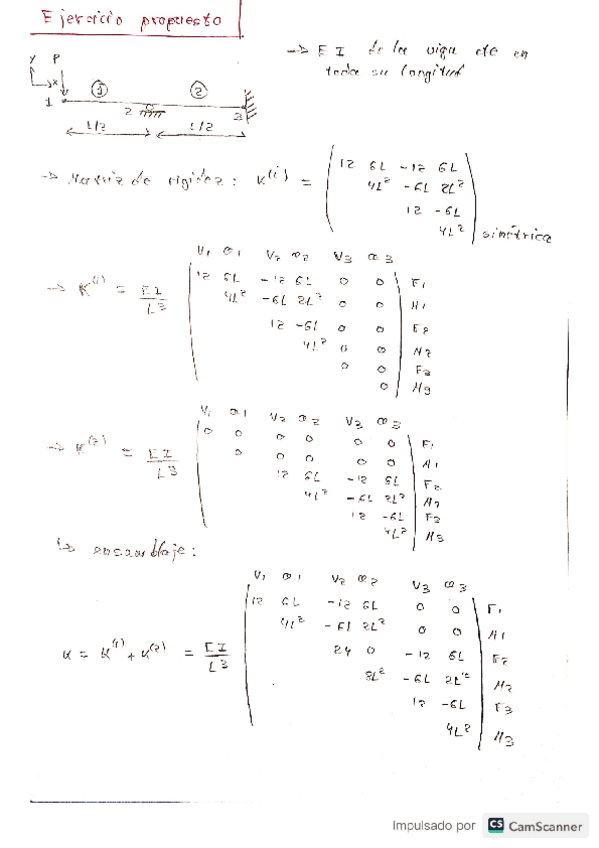 Ejercicio propuesto
→ EI de la viga cte en
toda su longitud
y P
x
① ②
1 2 3
L/2 L/2
→ Matriz de rigidez: K⁽ⁱ⁾ =
12 6L -12 6L
4L² -6L 2L²
12 -6L
4L² simétrica
V₁ θ₁ V₂ θ₂ V₃ θ₃
→ K⁽¹⁾ = EI/L³
12 6L -12 6L 0 0 F₁
4L² -6L 2L² 0 0 M₁
12 -6L 0 0 F₂
4L² 0 0 M₂
0 0 F₃
0 M₃
V₁ θ₁ V₂ θ₂ V₃ θ₃
→ K⁽²⁾ = EI/L³
0 0 0 0 0 0 F₁
0 0 0 0 0 M₁
12 6L -12 6L F₂
4L² -6L 2L² M₂
12 -6L F₃
4L² M₃
↳ ensamblaje:
V₁ θ₁ V₂ θ₂ V₃ θ₃
K = K⁽¹⁾ + K⁽²⁾ = EI/L³
12 6L -12 6L 0 0 F₁
4L² -6L 2L² 0 0 M₁
24 0 -12 6L F₂
8L² -6L 2L² M₂
12 -6L F₃
4L² M₃
Impulsado por CS CamScanner